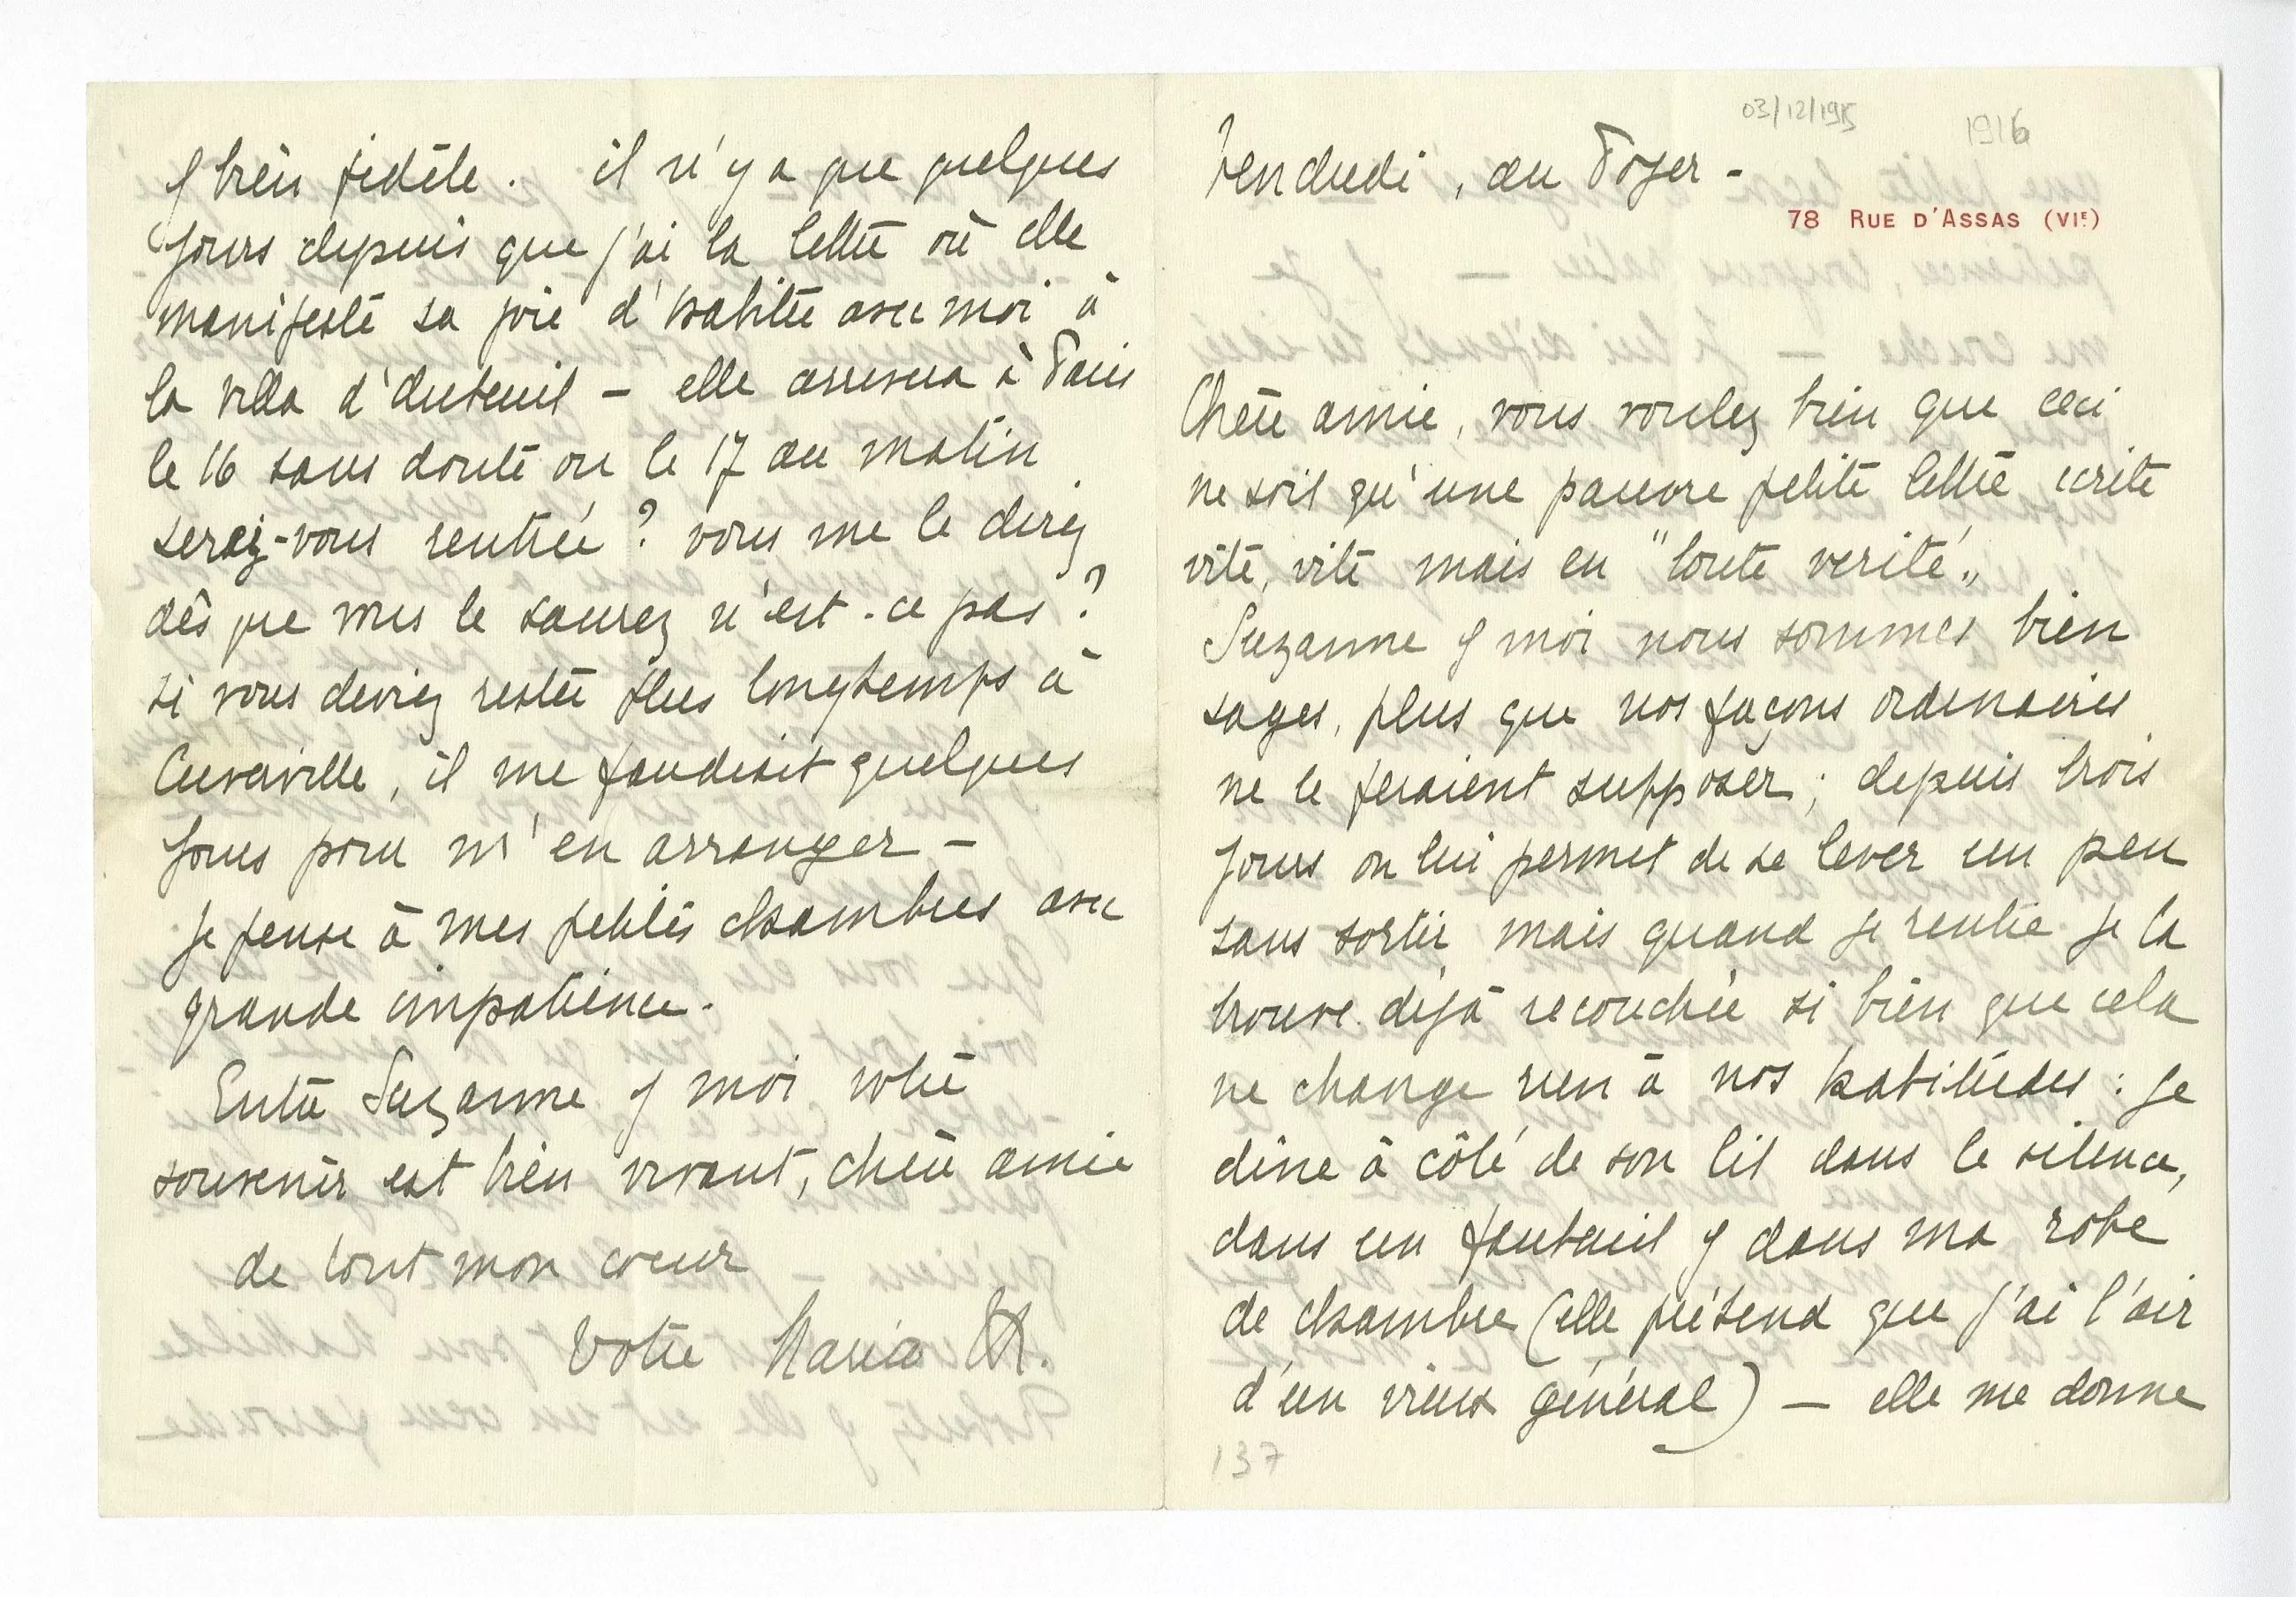 03/12/1915
1916
Vendredi, au Foyer -
78 RUE D'ASSAS (VIE)
Chère amie, vous voulez bien que ceci
ne soit qu'une pauvre petite lettre ecrite
vite, vite mais en "toute verité"
Suzanne & moi nous sommes bien
sages, plus que nos façons ordinaires
ne le feraient supposer ; depuis trois
jours on lui permet de se lever un peu
sans sortir mais quand je rentre je la
trouve déjà recouchée si bien que cela
ne change rien à nos habitudes : je
dîne à côté de son lit dans le silence,
dans un fauteuil & dans ma robe
de chambre (elle prétend que j'ai l'air
d'un vieux général) — elle me donne
137
& bien fidèle. il n'y a que quelques
jours depuis que j'ai la lettre où elle
manifeste sa joie d'habiter avec moi à
la villa d'Auteuil - elle arrivera à Paris
le 16 sans doute ou le 17 au matin
serez-vous rentrée ? vous me le direz
dès que vous le saurez n'est-ce pas ?
si vous deviez rester plus longtemps à
Cuverville, il me faudrait quelques
jours pour m'en arranger -
je pense à mes petites chambres avec
grande impatience.
Entre Suzanne & moi votre
souvenir est bien vivant, chère amie
de tout mon coeur
Votre Maria